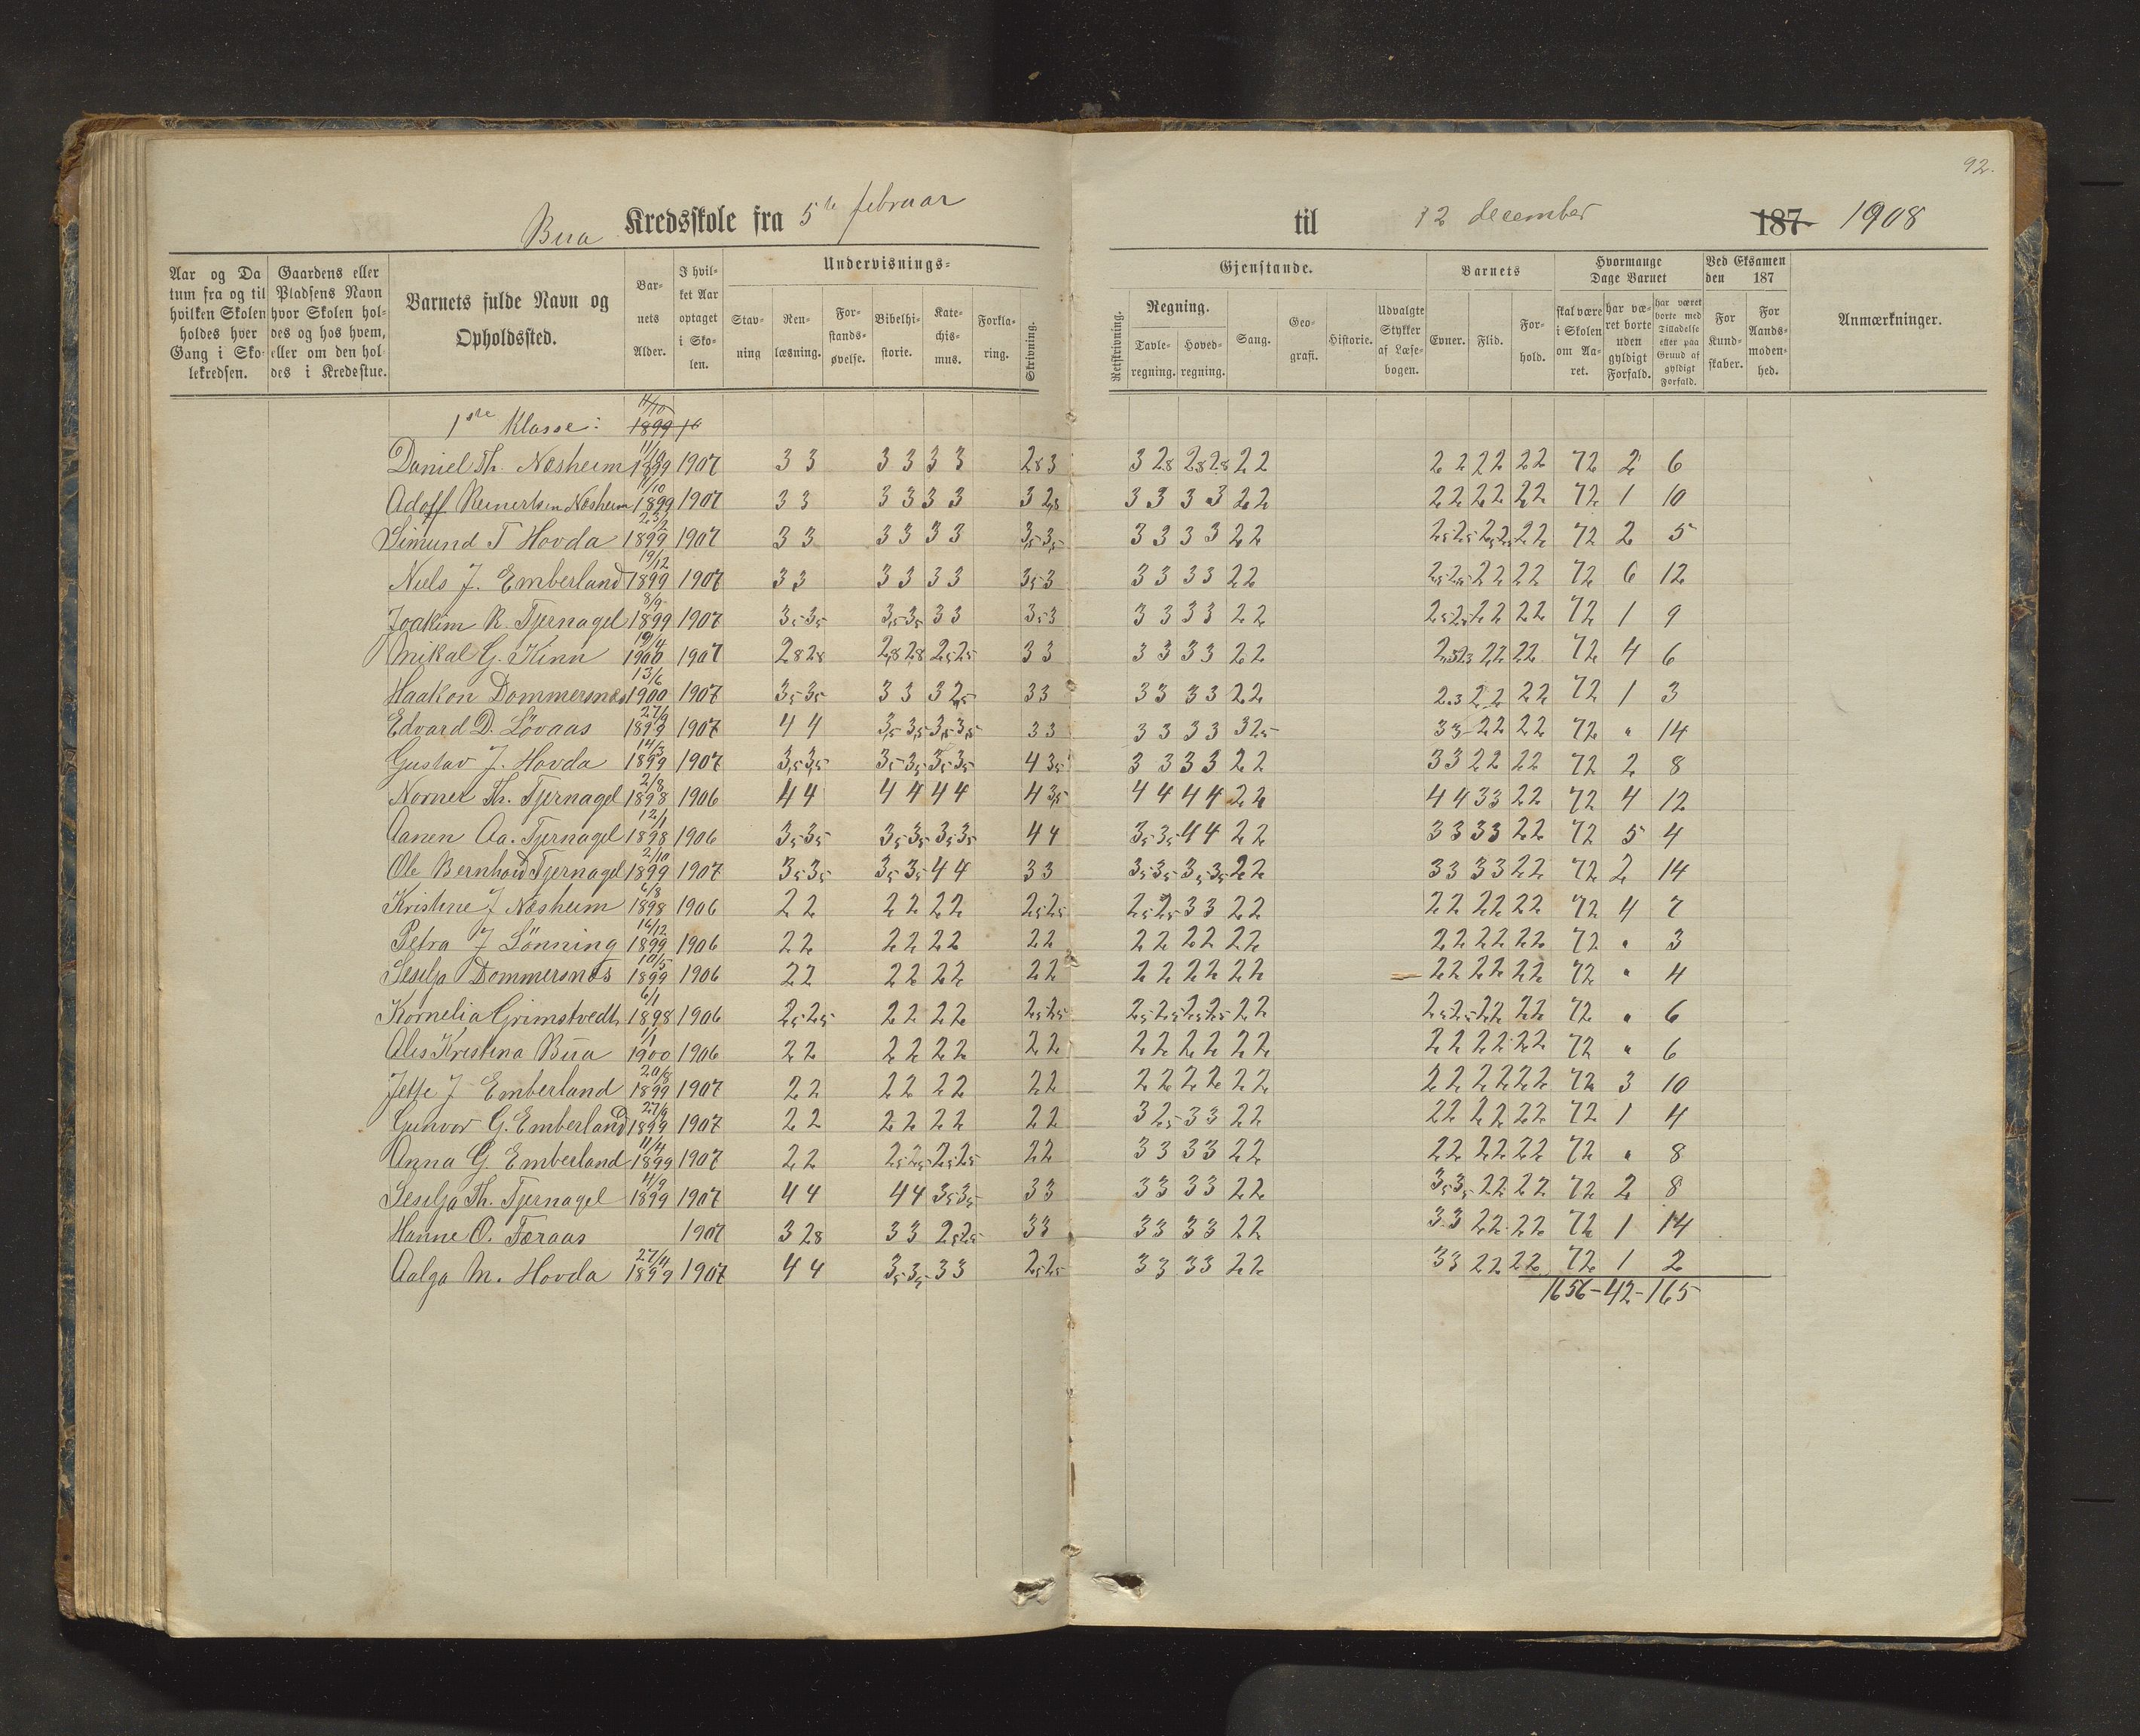 92.
Bua Kredsskole fra 5te februar til 12 december 187 1908
Aar og Da tum fra og til hvilken Skolen holdes hver Gang i Sko- lekredsen.
Gaardens eller Pladsens Navn hvor Skolen hol- des og hos hvem, eller om den hol- des i Kredsstue.
Barnets fulde Navn og Opholdssted.
Bar- nets Alder.
I hvil- ket Aar optaget i Sko- len.
Undervisnings-
Stav- ning
Ren- læsning.
For- stands- øvelse.
Bibelhi- storie.
Kate- chis- mus.
Forkla- ring.
Skrivning.
Gjenstande.
Retskrivning.
Regning.
Tavle- regning.
Hoved- regning.
Sang.
Geo- grafi.
Historie.
Udvalgte Stykker af Læse- bogen.
Barnets
Evner.
Flid.
For- hold.
Hvormange Dage Barnet
skal være i Skolen om Aa- ret.
har væ- ret borte uden gyldigt Forfald.
har været borte med Tilladelse eller paa Grund af gyldigt Forfald.
Ved Eksamen den 187
For Kund- skaber.
For Aands- moden- hed.
Anmærkninger.
1ste Klasse: 11/10 1899
Daniel Th. Næsheim 11/10 1899 1907 3 3 3 3 3 3 28 3 3 28 28 28 2 2 2 2 2 2 2 2 72 2 6
Adolf Reinertsen Næsheim 1899 1907 3 3 3 3 3 3 3 28 3 3 3 3 2 2 2 2 2 2 2 2 72 1 10
Simund T Hovda 23/2 1899 1907 3 3 3 3 3 3 35 35 3 3 3 3 2 2 25 25 25 25 2 2 72 2 5
Niels J. Emberland 19/12 1899 1907 3 3 3 3 3 3 35 3 3 3 3 3 2 2 25 25 2 2 2 2 72 6 12
Joakim R. Tjernagel 8/9 1899 1907 35 35 35 35 3 3 35 3 3 3 3 3 2 2 25 25 2 2 2 2 72 1 9
Mikal G. Kinn 19/4 1900 1907 28 28 28 28 25 25 3 3 3 3 3 3 2 2 25 23 2 2 2 2 72 4 6
Haakon Dommersnæs 13/6 1900 1907 35 35 3 3 3 25 3 3 3 3 3 3 2 2 2 3 2 2 2 2 72 1 3
Edvard D. Lövaas 27/9 1899 1907 4 4 35 35 35 35 3 3 3 3 3 3 3 25 3 3 2 2 2 2 72 " 14
Gustav J. Hovda 14/3 1899 1907 35 35 35 35 35 35 4 35 3 3 3 3 2 2 3 3 2 2 2 2 72 2 8
Norner Th. Tjernagel 2/8 1898 1906 4 4 4 4 4 4 4 35 4 4 4 4 2 2 4 4 3 3 2 2 72 4 12
Aanen Aa. Tjernagel 12/1 1898 1906 35 35 35 35 35 35 4 4 35 35 4 4 2 2 3 3 3 3 2 2 72 5 4
Ole Bernhard Tjernagel 2/10 1899 1907 35 35 35 35 4 4 3 3 35 35 35 35 2 2 3 3 3 3 2 2 72 2 14
Kristine J Næsheim 6/8 1898 1906 2 2 2 2 2 2 25 25 25 25 3 3 2 2 2 2 2 2 2 2 72 4 7
Petra J Lönning 16/12 1899 1906 2 2 2 2 2 2 2 2 2 2 2 2 2 2 2 2 2 2 2 2 72 " 3
Seselja Dommersnæs 10/5 1899 1906 2 2 2 2 2 2 2 2 2 2 2 2 2 2 2 2 2 2 2 2 72 " 4
Kornelia Grimstvedt 6/1 1898 1906 25 25 2 2 2 2 25 25 25 25 25 25 2 2 25 25 2 2 2 2 72 " 6
Alis Kristina Bua 1/1 1900 1906 2 2 2 2 2 2 2 2 2 2 2 2 2 2 2 2 2 2 2 2 72 " 6
Jette J Emberland 20/8 1899 1907 2 2 2 2 2 2 2 2 2 2 2 2 2 2 2 2 2 2 2 2 72 3 10
Gunvor G. Emberland 27/9 1899 1907 2 2 2 2 2 2 2 2 3 25 3 3 2 2 2 2 2 2 2 2 72 1 4
Anna G Emberland 11/4 1899 1907 2 2 25 25 25 25 2 2 3 3 3 3 2 2 2 2 2 2 2 2 72 " 8
Seselja Th. Tjernagel 11/9 1899 1907 4 4 4 4 35 35 3 3 3 3 3 3 2 2 35 35 2 2 2 2 72 2 8
Hanne O. Færaas 1907 3 28 3 3 25 25 3 3 3 3 3 3 2 2 3 3 2 2 2 2 72 1 14
Aalga M. Hovda 27/4 1899 1907 4 4 35 35 3 3 25 25 3 3 3 3 2 2 3 3 2 2 2 2 72 1 2
1656-42-165